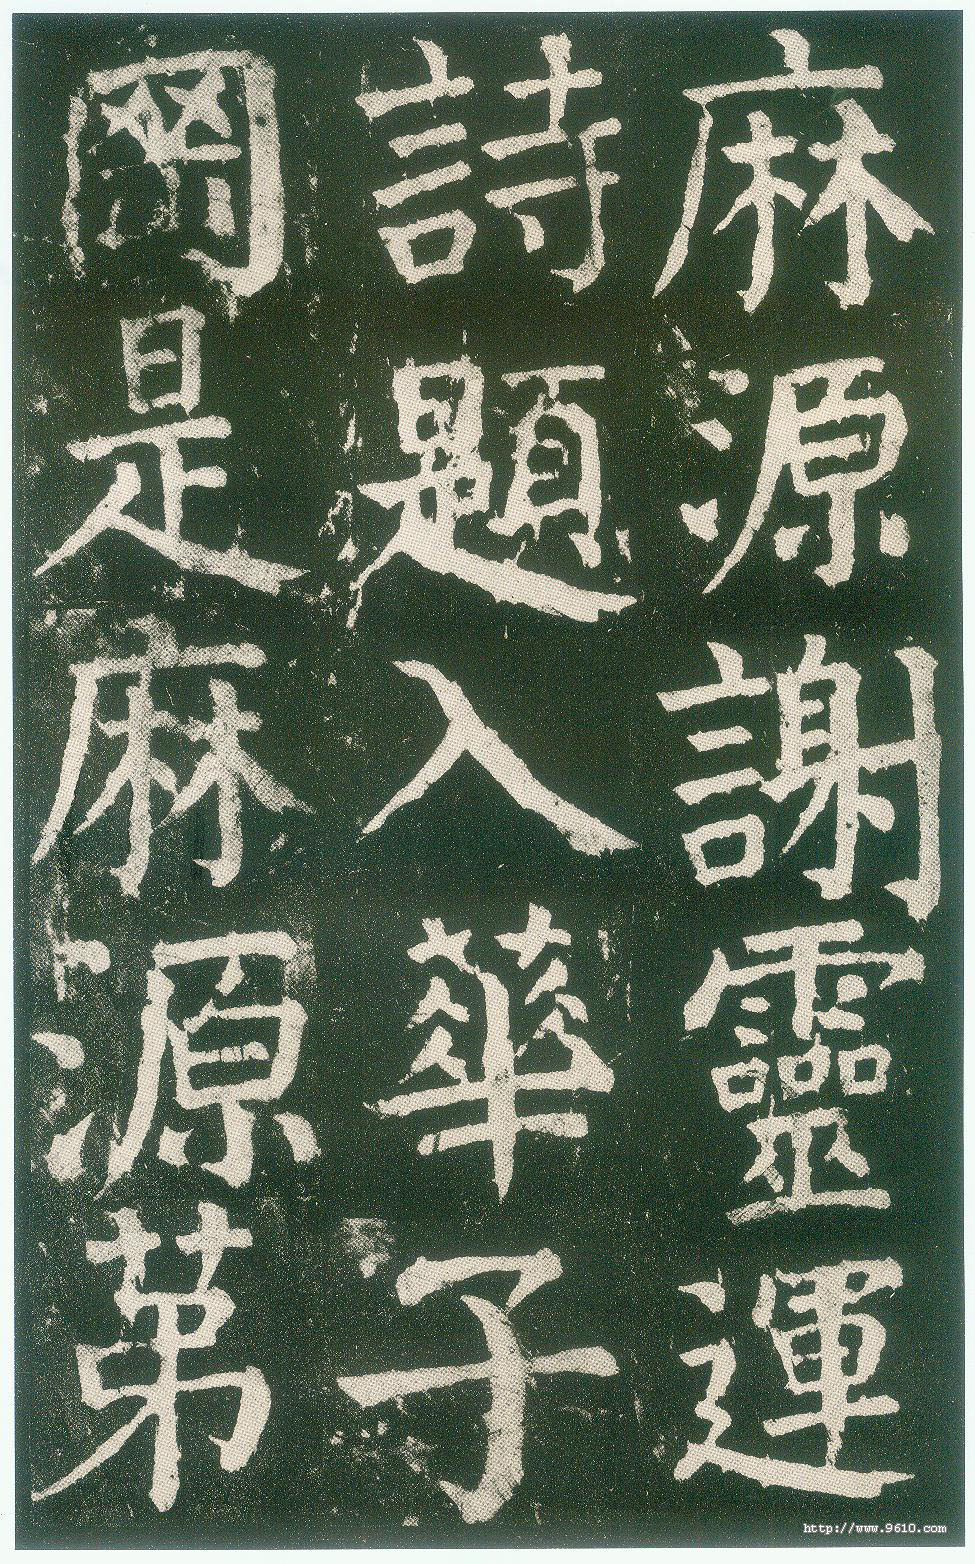 麻源謝靈運
詩題入華子
岡是麻源苐
http://www.9610.com